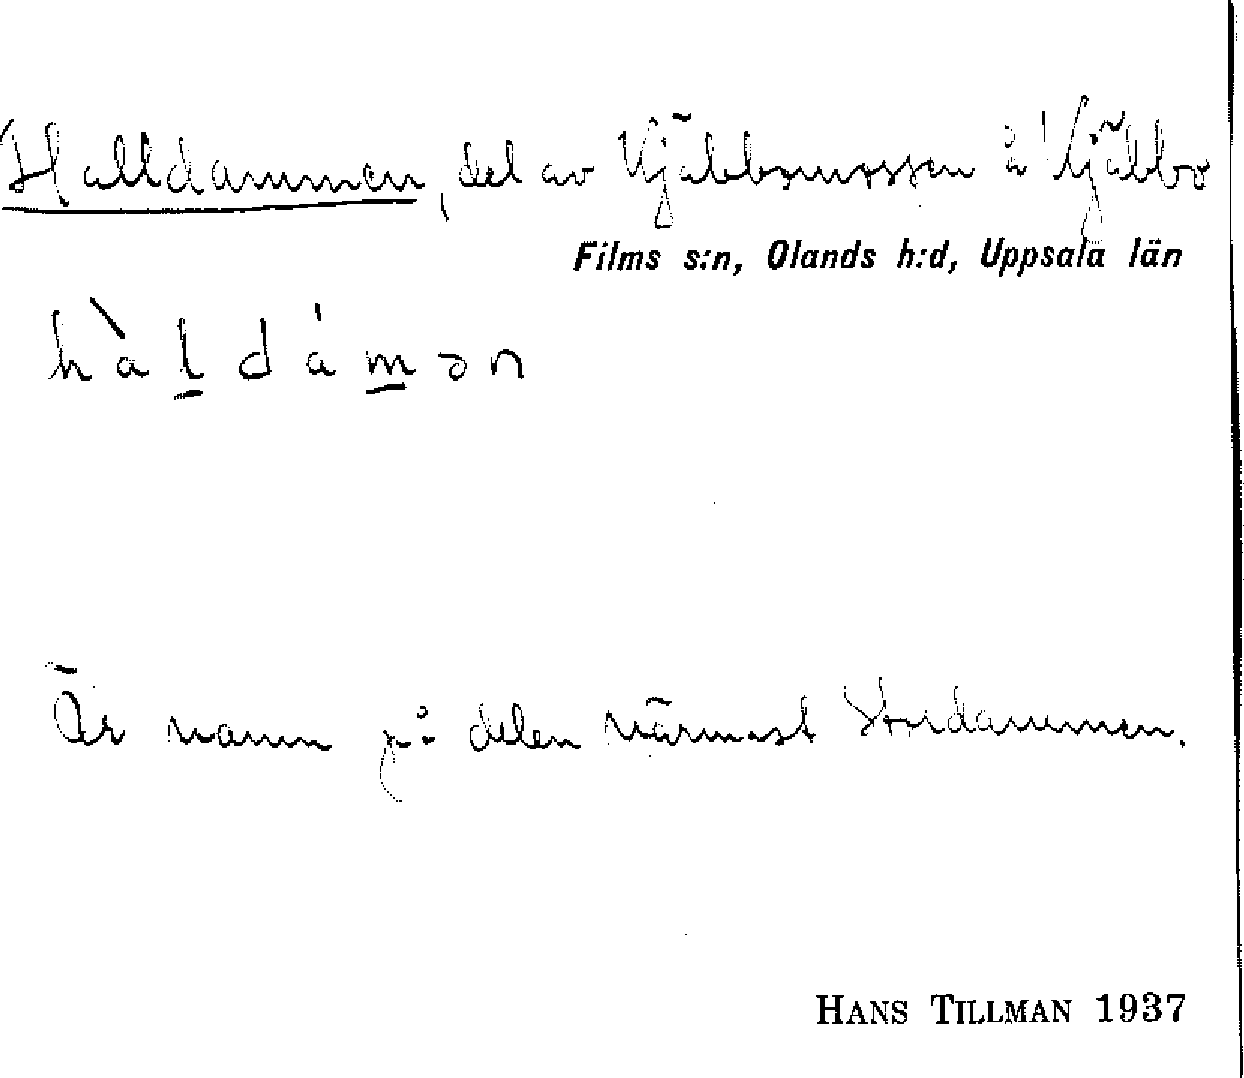 Halldammen, del av Kjäbbomossen å Kjäbbo
Films s:n, Olands h:d, Uppsala län
hàldámən
Är namn på delen närmast Stordammen.
HANS TILLMAN 1937